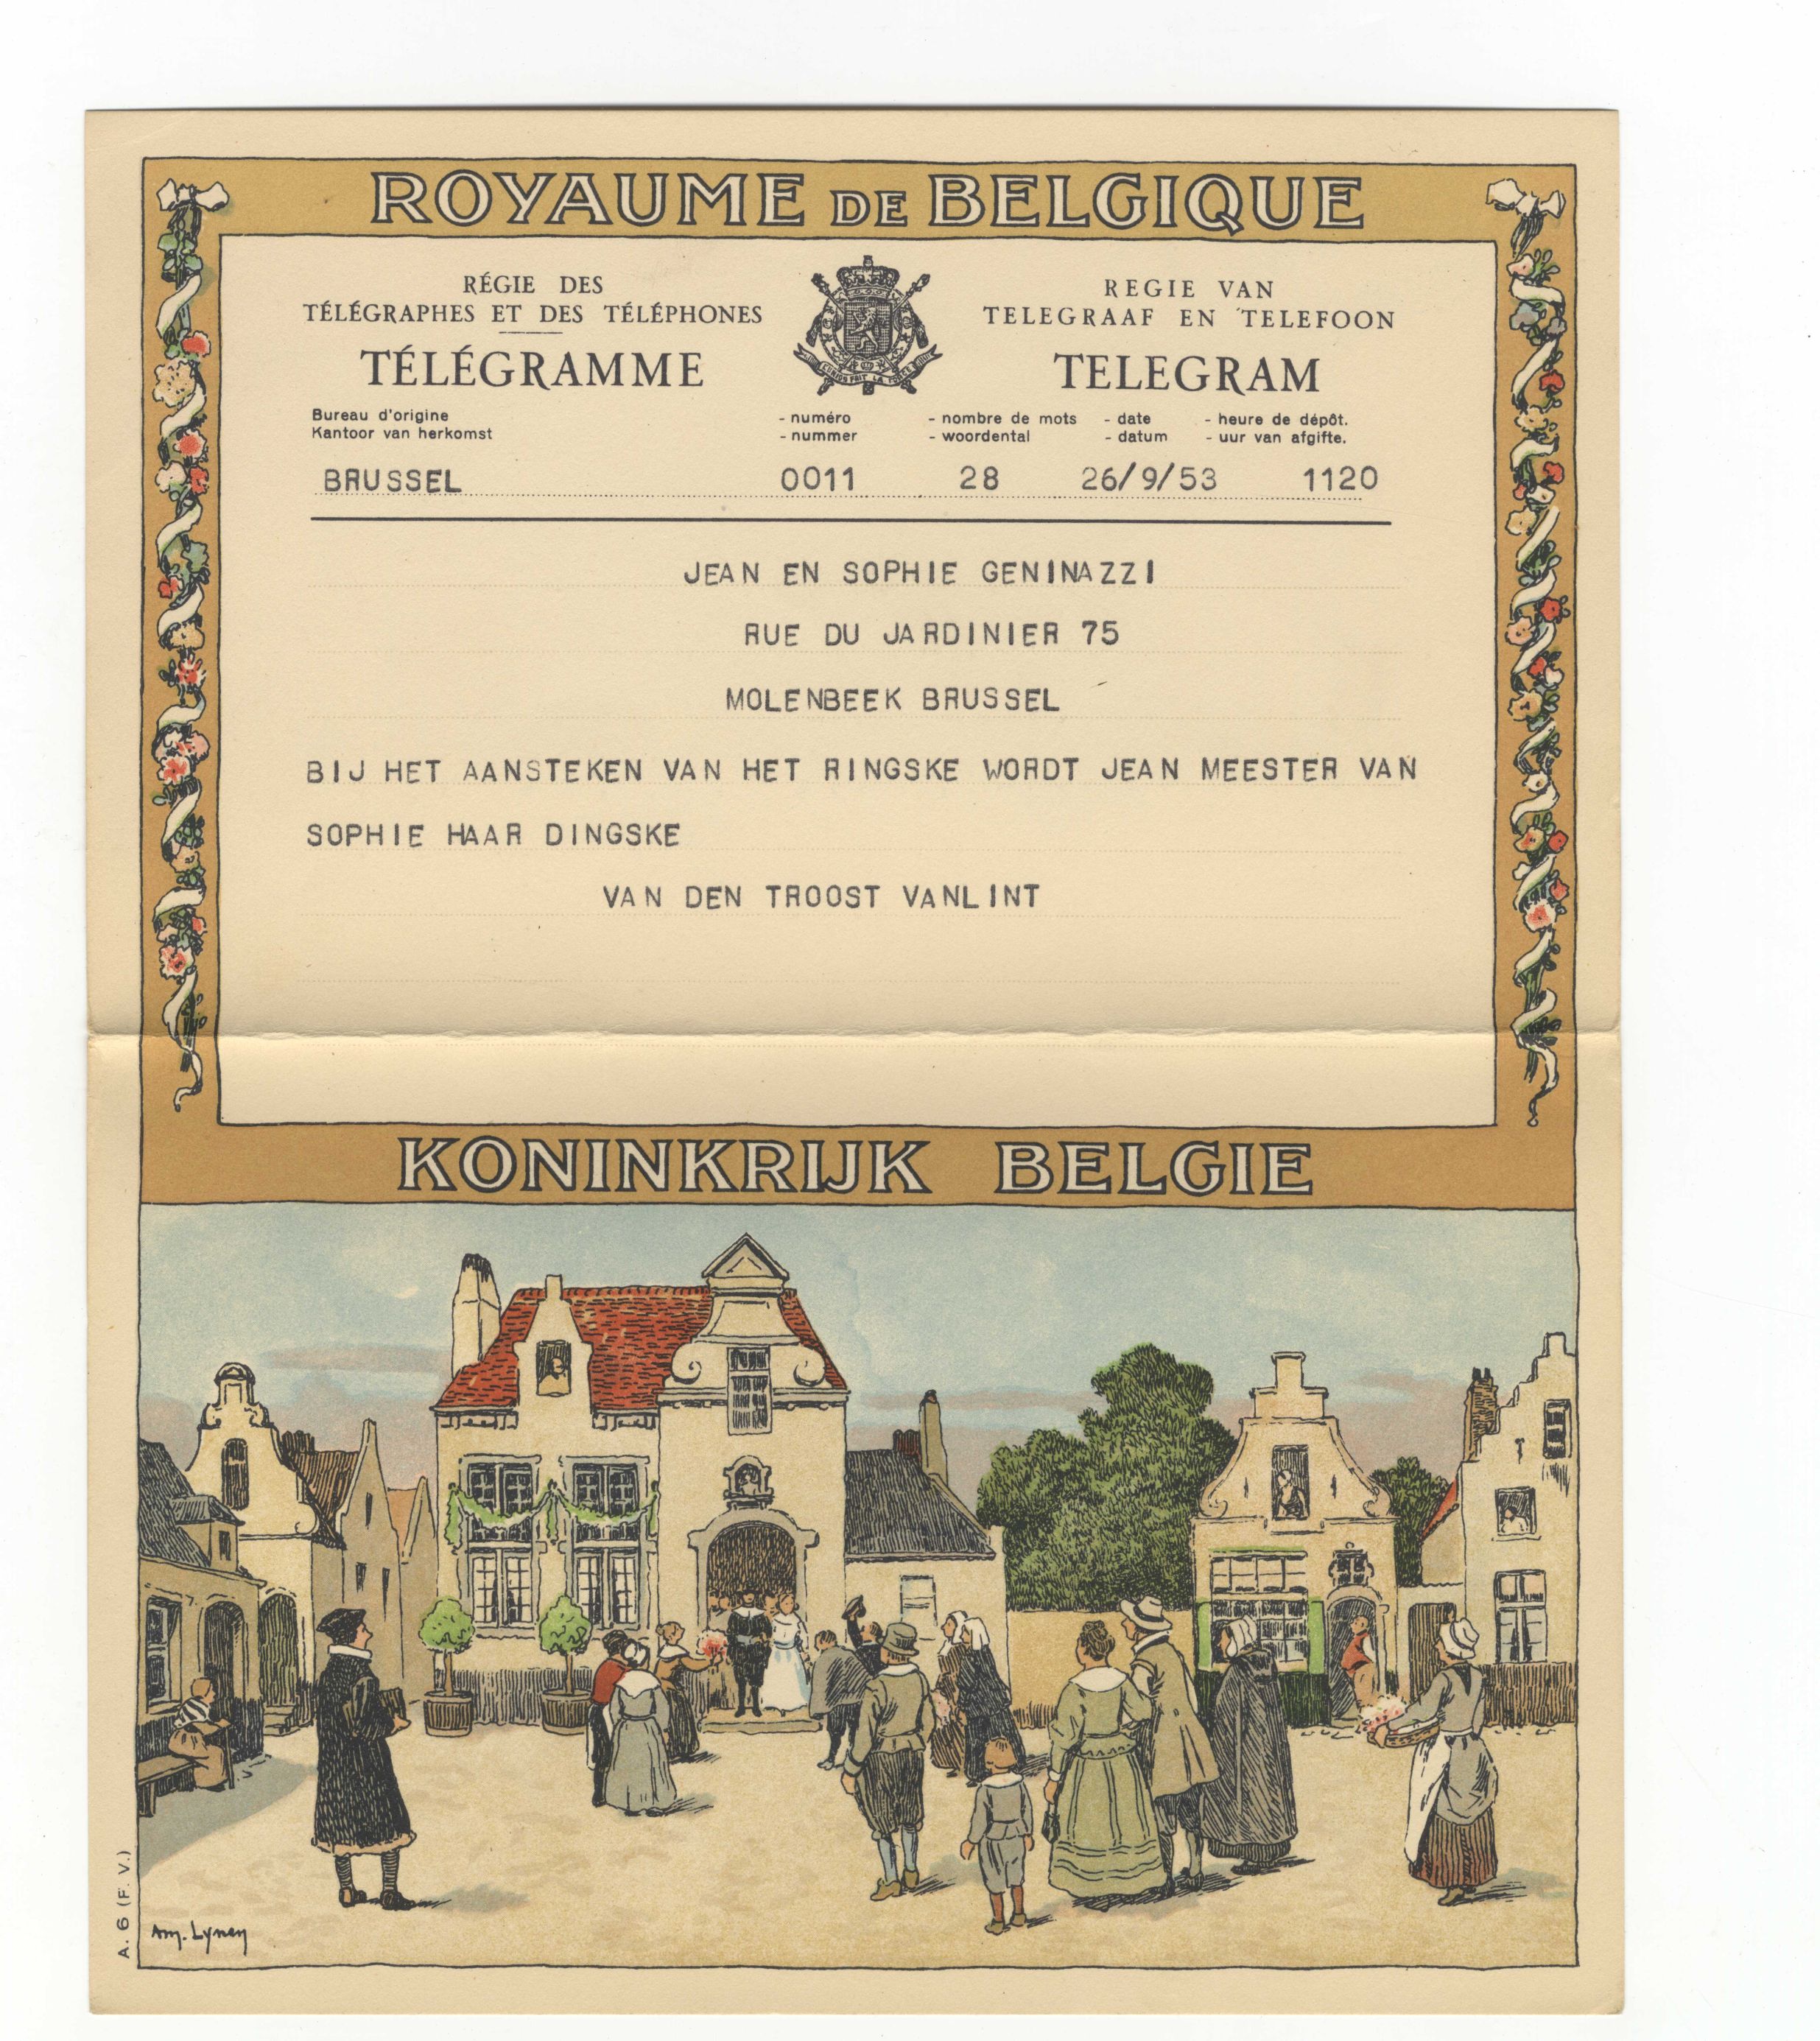 ROYAUME DE BELGIQUE
RÉGIE DES
TÉLÉGRAPHES ET DES TÉLÉPHONES
TÉLÉGRAMME
L'UNION FAIT LA FORCE
REGIE VAN
TELEGRAAF EN TELEFOON
TELEGRAM
Bureau d'origine - numéro - nombre de mots - date - heure de dépôt.
Kantoor van herkomst - nummer - woordental - datum - uur van afgifte.
BRUSSEL 0011 28 26/9/53 1120
JEAN EN SOPHIE GENINAZZI
RUE DU JARDINIER 75
MOLENBEEK BRUSSEL
BIJ HET AANSTEKEN VAN HET RINGSKE WORDT JEAN MEESTER VAN
SOPHIE HAAR DINGSKE
VAN DEN TROOST VANLINT
KONINKRIJK BELGIE
A. 6 (F. V.)
Am. Lynen